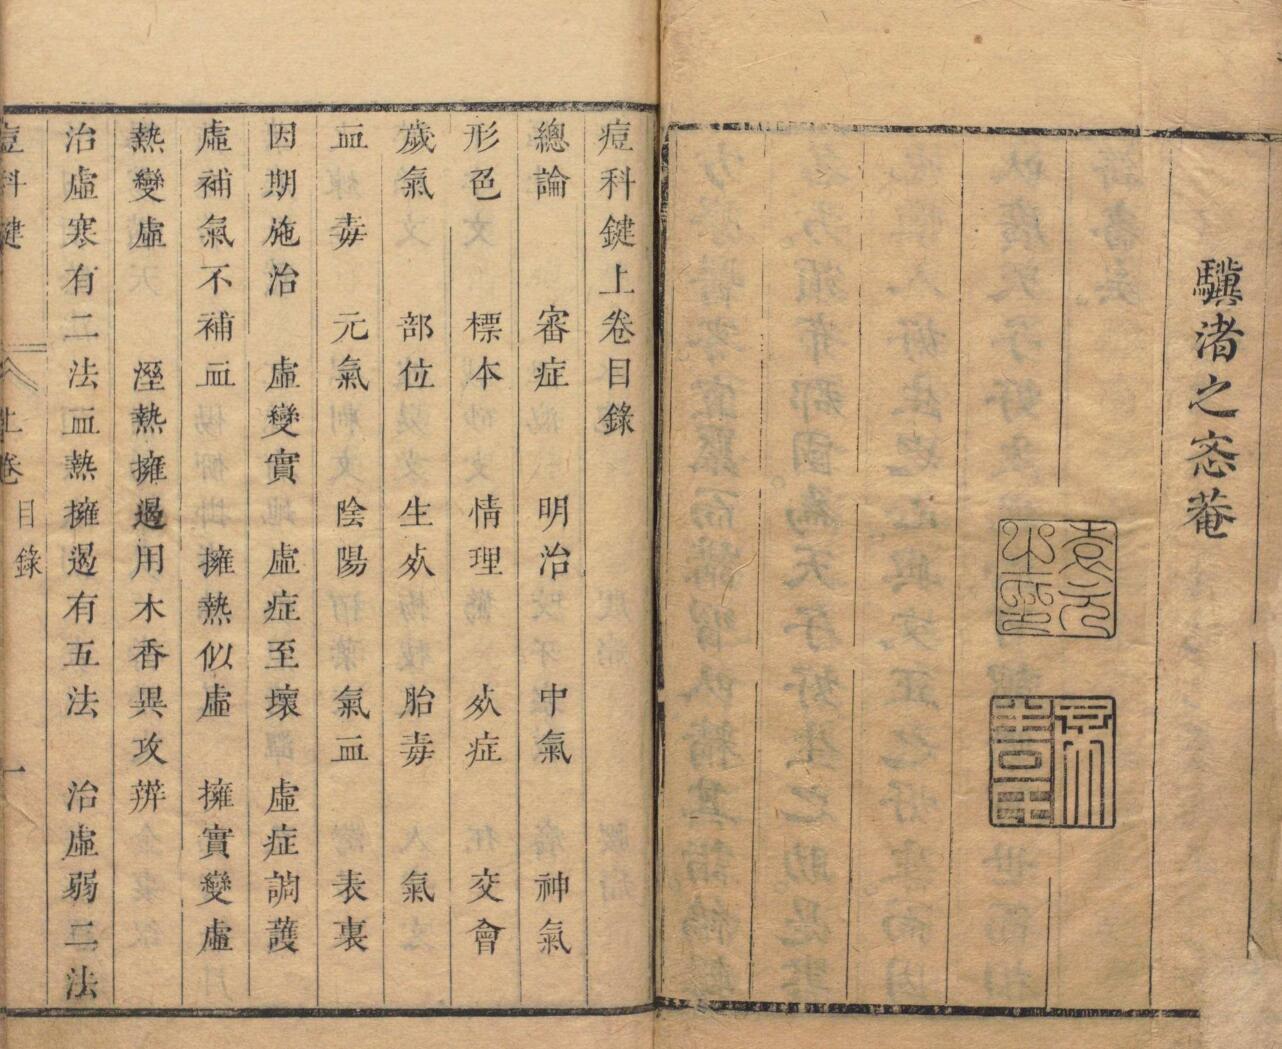 驥渚之菴
痘科鍵上卷目錄
總論　審症　明治　中氣　神氣
形色　標本　情理　死症　交會
歲氣　部位　生死　胎毒　氣
血毒　元氣　陰陽　氣血　表裏
因期施治　虛變實　虛症至壞　虛症調護
虛補氣不補血　擁熱似虛　擁實變虛
熱變虛　溼熱擁遏用木香異攻辨
治虛寒有二法血熱擁遏有五法　治虛弱三法
痘科鍵　上卷　目錄　一